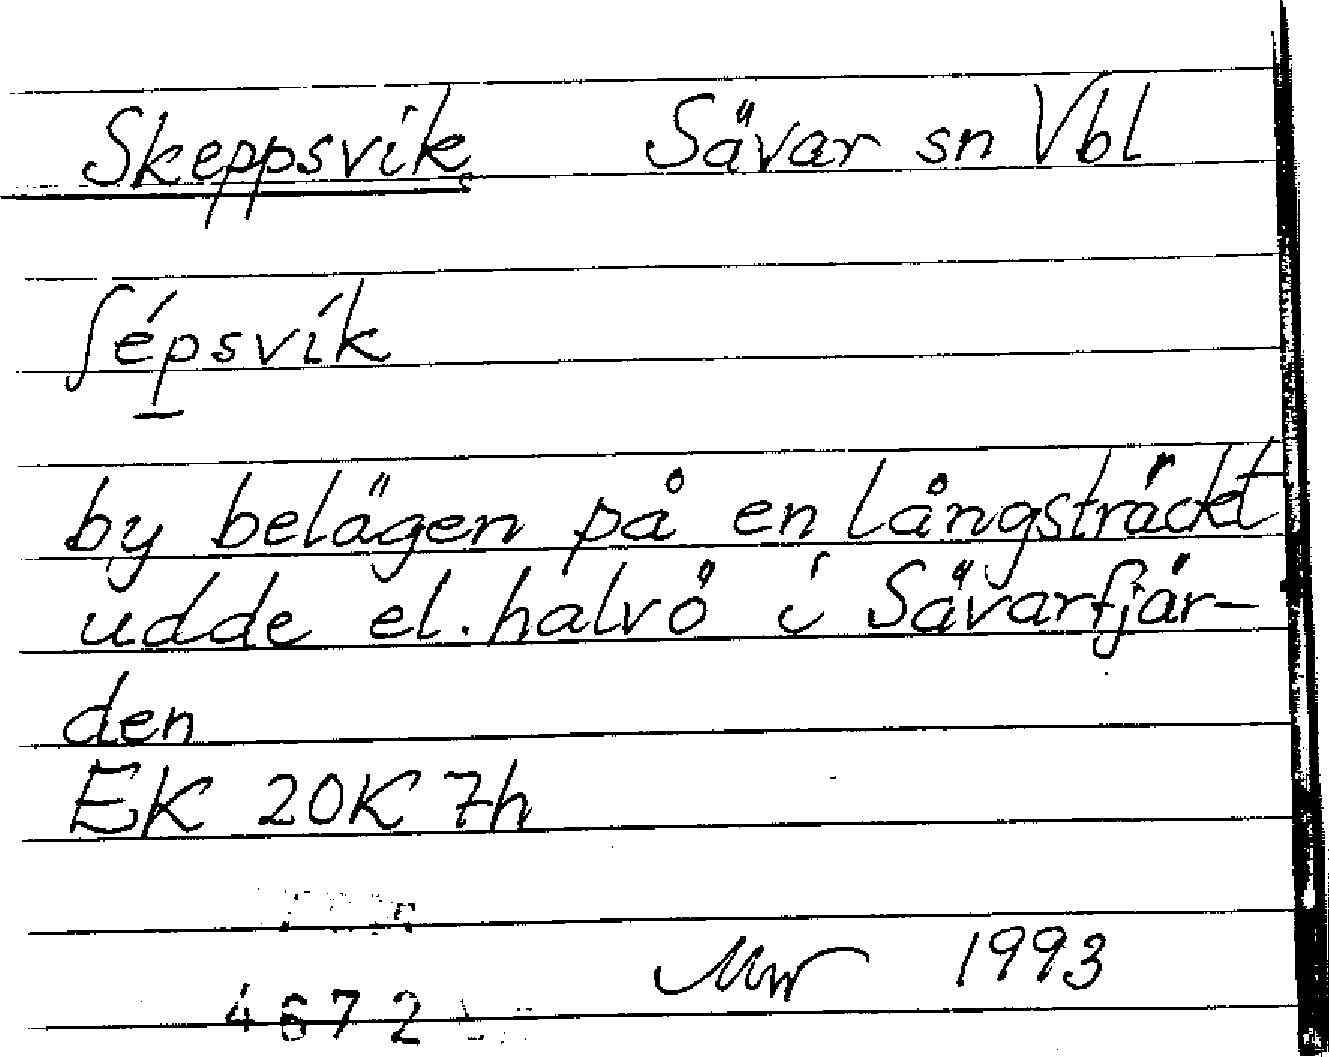 Skeppsvik Sävar sn Vbl
ʃépsvík
by belägen på en långsträckt
udde el. halvö i Sävarfjär-
den
EK 20K 7h
1993
4672